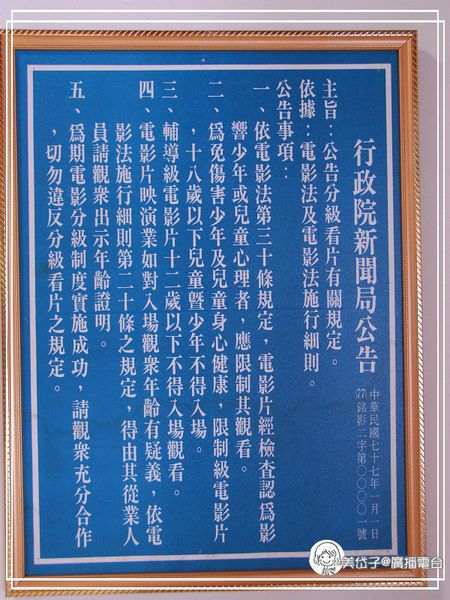 行政院新聞局公告
中華民國七十七年一月一日
(77)銘影二字第〇〇〇〇一號
主旨：公告分級看片有關規定。
依據：電影法及電影法施行細則。
公告事項：
一、依電影法第三十條規定，電影片經檢查認為影
響少年或兒童心理者，應限制其觀看。
二、為免傷害少年及兒童身心健康，限制級電影片
，十八歲以下兒童暨少年不得入場。
三、輔導級電影片十二歲以下不得入場觀看。
四、電影片映演業如對入場觀眾年齡有疑義，依電
影法施行細則第二十條之規定，得由其從業人
員請觀眾出示年齡證明。
五、為期電影分級制度實施成功，請觀眾充分合作
，切勿違反分級看片之規定。
美岱子@廣播電台